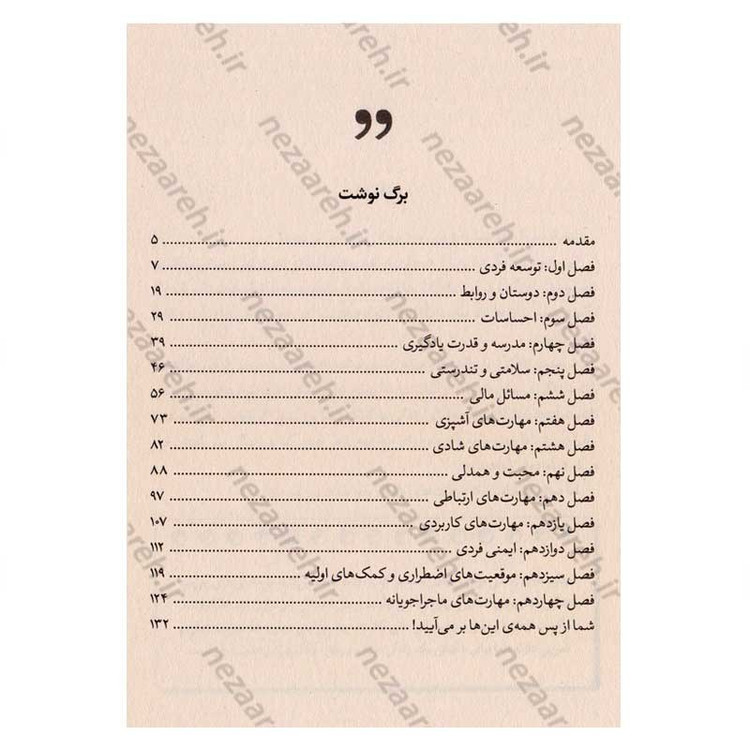 برگ نوشت
مقدمه ........................ ۵
فصل اول: توسعه فردی ........................ ۷
فصل دوم: دوستان و روابط ........................ ۱۹
فصل سوم: احساسات ........................ ۲۹
فصل چهارم: مدرسه و قدرت یادگیری ........................ ۳۹
فصل پنجم: سلامتی و تندرستی ........................ ۴۶
فصل ششم: مسائل مالی ........................ ۵۶
فصل هفتم: مهارت‌های آشپزی ........................ ۷۳
فصل هشتم: مهارت‌های شادی ........................ ۸۲
فصل نهم: محبت و همدلی ........................ ۸۸
فصل دهم: مهارت‌های ارتباطی ........................ ۹۷
فصل یازدهم: مهارت‌های کاربردی ........................ ۱۰۷
فصل دوازدهم: ایمنی فردی ........................ ۱۱۲
فصل سیزدهم: موقعیت‌های اضطراری و کمک‌های اولیه ........................ ۱۱۹
فصل چهاردهم: مهارت‌های ماجراجویانه ........................ ۱۲۴
شما از پس همه‌ی این‌ها بر می‌آیید! ........................ ۱۳۲
nezaareh.ir